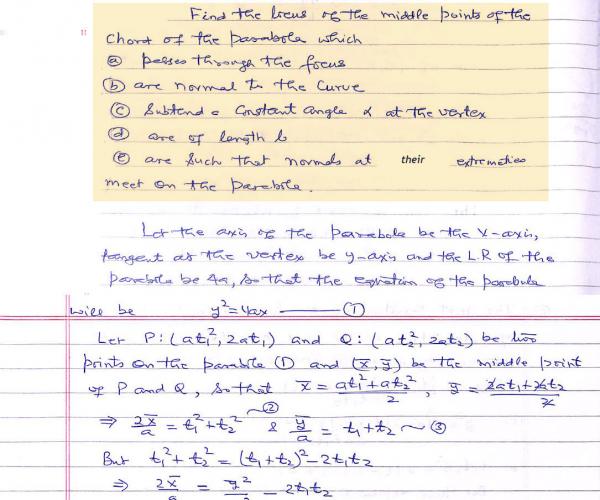 Find the locus of the middle points of the
11
Chord of the parabola which
(a) passes through the focus
(b) are normal to the curve
(c) Subtend a Constant angle α at the vertex
(d) are of length l
(e) are such that normals at their extremities
meet on the parabola.
Let the axis of the parabola be the X-axis,
tangent at the vertex be y-axis and the L.R of the
parabola be 4a, so that the equation of the parabola
will be y²=4ax —— (1)
Let P:(at₁², 2at₁) and Q:(at₂², 2at₂) be two
points on the parabola (1) and (x̄, ȳ) be the middle point
of P and Q, so that x̄ = (at₁²+at₂²)/2, ȳ = (2at₁+2at₂)/2
⇒ 2x̄/a = t₁²+t₂² ~(2) & ȳ/a = t₁+t₂ ~(3)
But t₁²+t₂² = (t₁+t₂)²-2t₁t₂
⇒ 2x̄/a = ȳ²/a² - 2t₁t₂